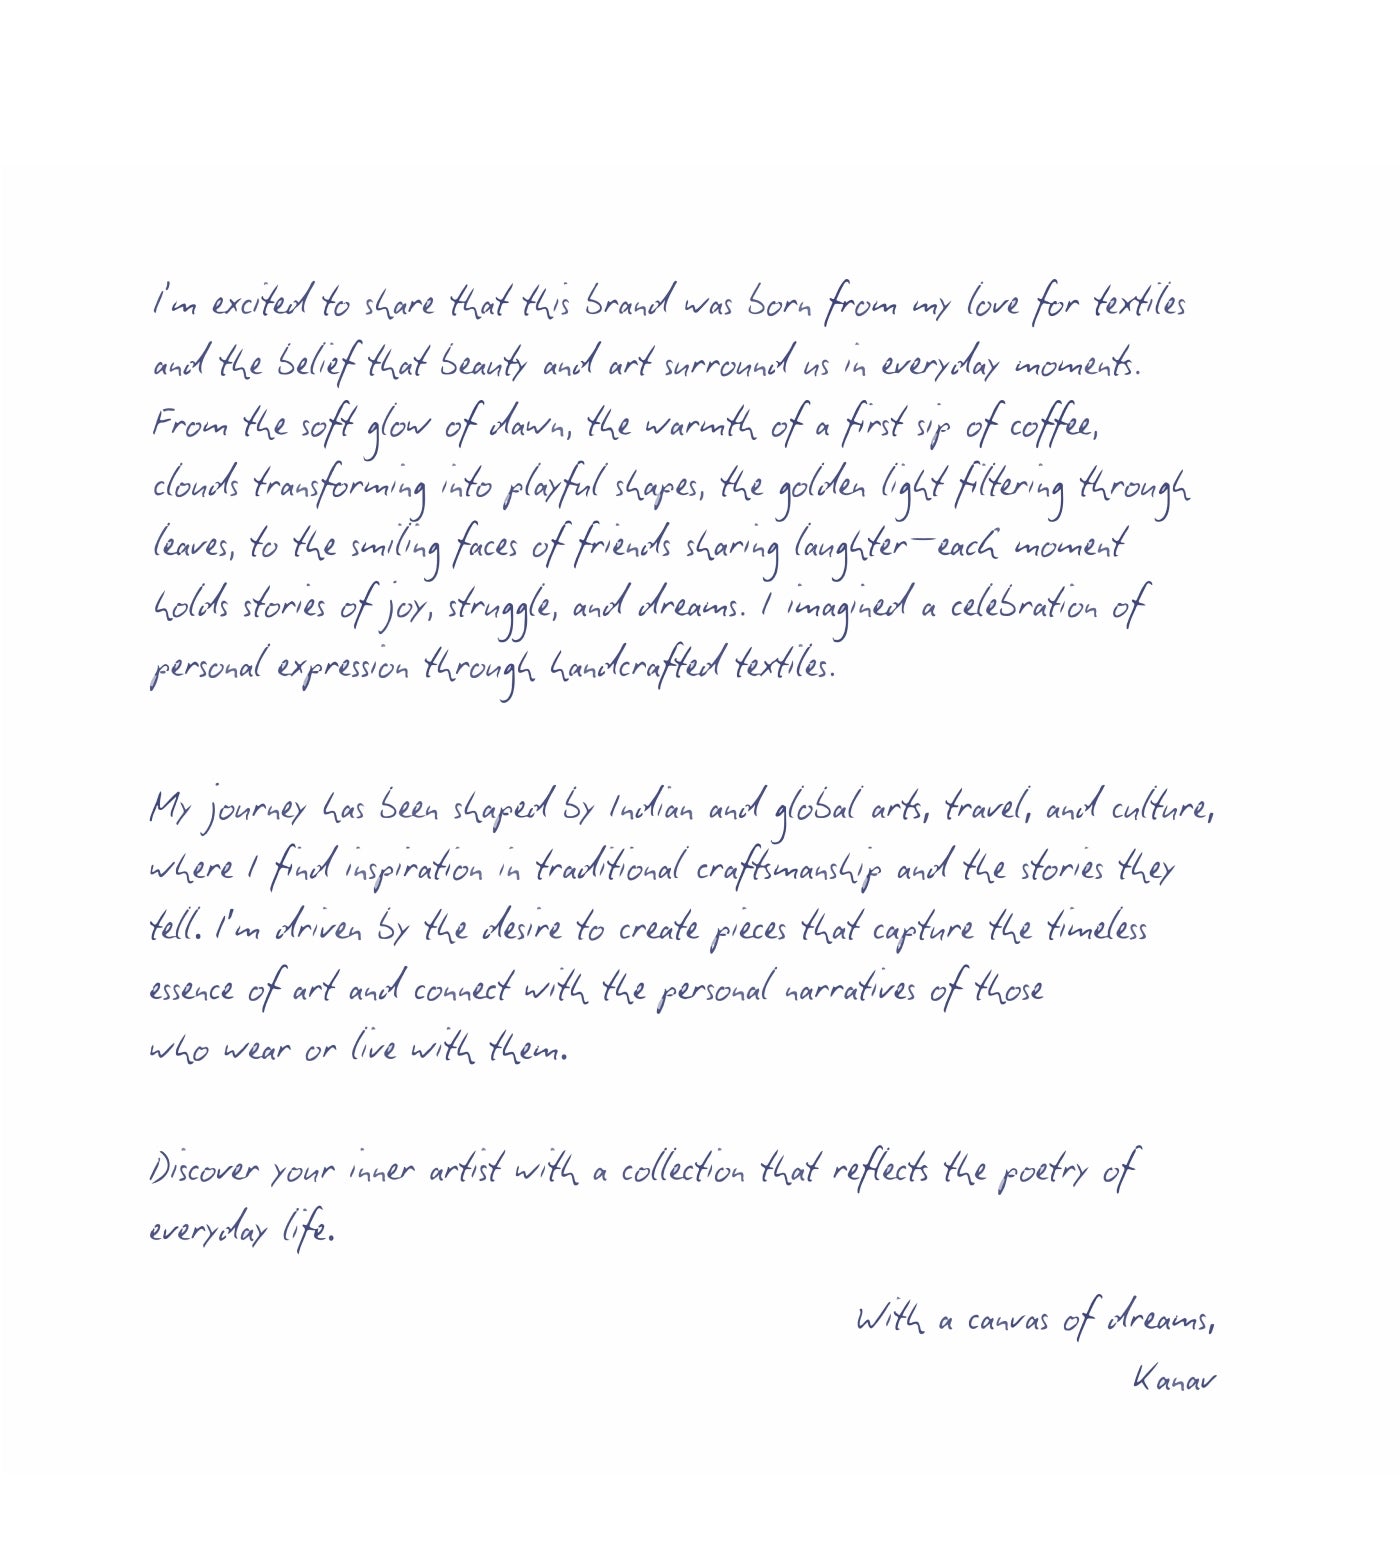 I'm excited to share that this brand was born from my love for textiles
and the belief that beauty and art surround us in everyday moments.
From the soft glow of dawn, the warmth of a first sip of coffee,
clouds transforming into playful shapes, the golden light filtering through
leaves, to the smiling faces of friends sharing laughter—each moment
holds stories of joy, struggle, and dreams. I imagined a celebration of
personal expression through handcrafted textiles.
My journey has been shaped by Indian and global arts, travel, and culture,
where I find inspiration in traditional craftsmanship and the stories they
tell. I'm driven by the desire to create pieces that capture the timeless
essence of art and connect with the personal narratives of those
who wear or live with them.
Discover your inner artist with a collection that reflects the poetry of
everyday life.
With a canvas of dreams,
Kanav